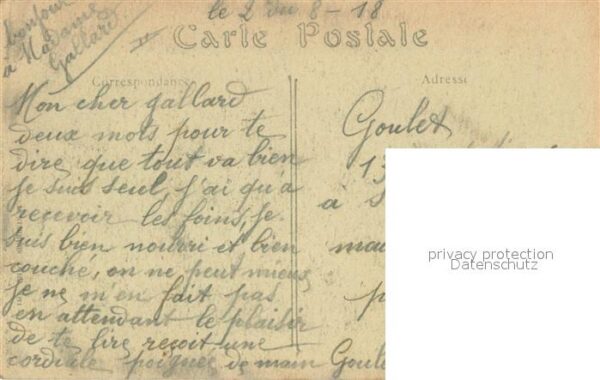 le 2 du 8-18
bonjour
à Madame
Gallard
Carte Postale
Correspondance
Adresse
Mon cher gallard
deux mots pour te
dire que tout va bien
je suis seul, j'ai qu'a
recevoir les foins, je
suis bien nourri et bien
couché, on ne peut mieux
je ne m'en fait pas
en attendant le plaisir
de te lire reçoit une
cordiale poignée de main Goulet
Goulet
13
à S
mai
p
privacy protection
Datenschutz